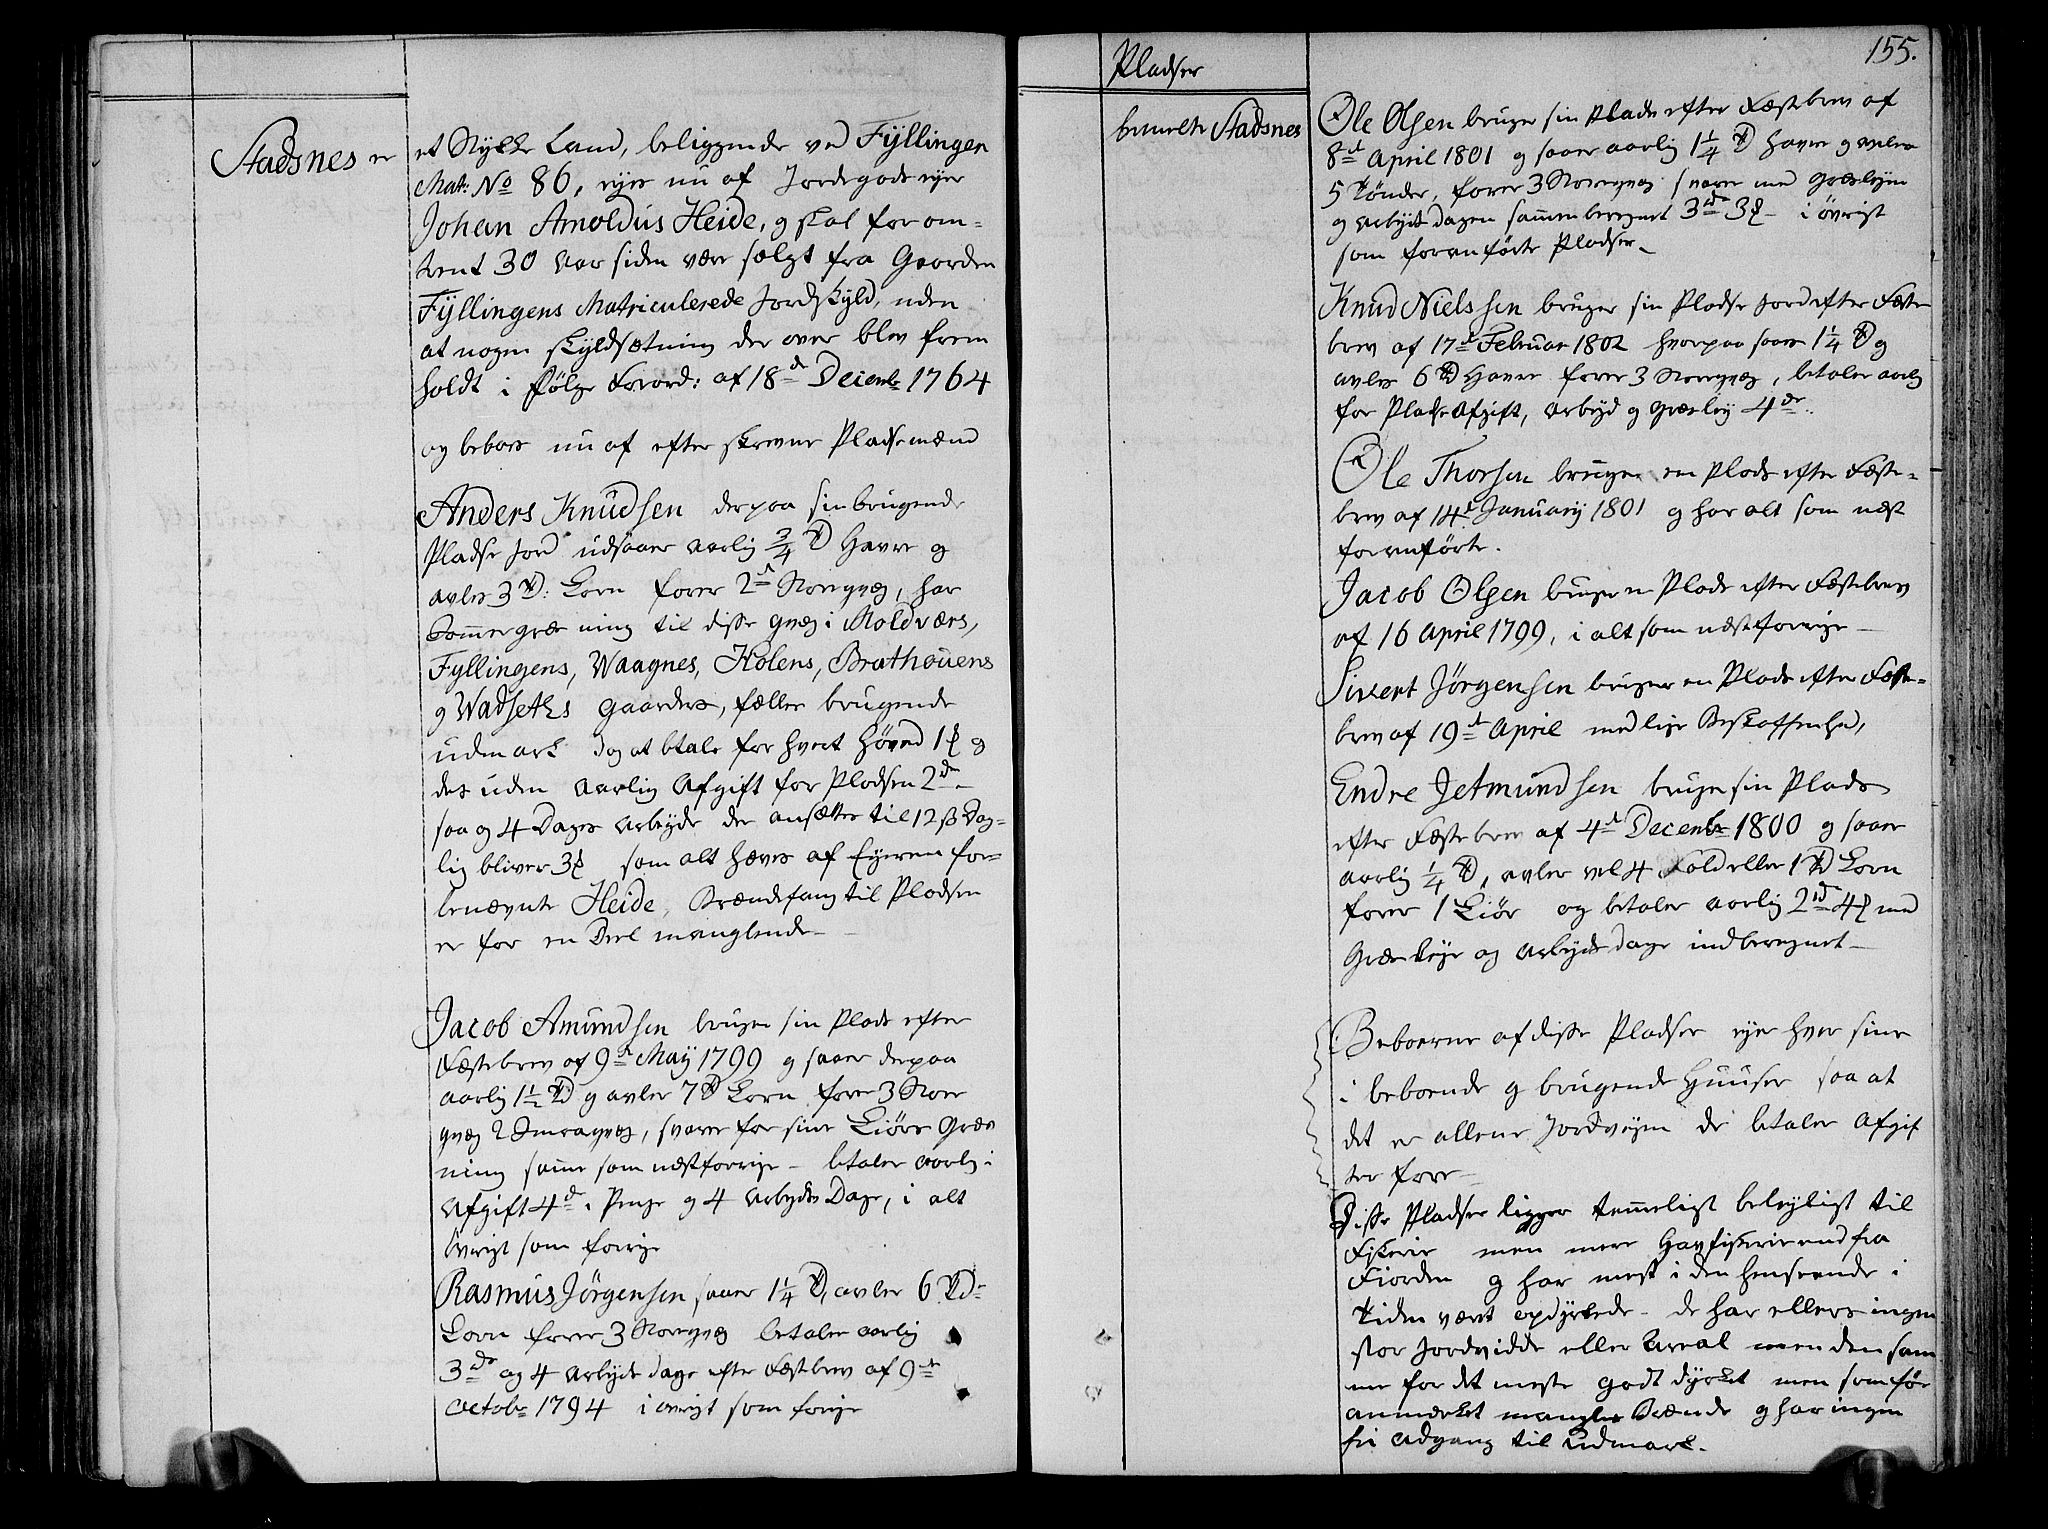 Stadsnes er
et Stÿkke Land, beliggende ved Fÿllingen
Mat: No 86, eÿes nu af Jordegodseÿer
Johan Arnoldus Heide, og skal for om-
trent 30 Aar siden være sælgt fra Gaarden
Fÿllingens Matriculerede Jordskÿld, uden
at nogen Skÿldsætning der over blev frem
holdt i Følge Forord: af 18d Decembr 1764
og beboes nu af efterskrevne Pladsemænd
Anders Knudsen der paa sin brugende
Pladse Jord udsaaer aarlig 3/4 Td Havre og
avler 3 Td: Korn foder 2d Storeqvæg, har
Sommergræsning til disse qvæg i Moldværs,
Fyllingens, Waagnes, Holens, Brathouens
og Wadseths Gaarders, fælles brugende
udmark dog at btale for hvert Høved 1 og
des uden aarlig Afgift for Pladsen 2dr
saa og 4 Dages Arbeÿde der ansættes til 12 ß Dag-
lig bliver 3 som alt hæves af Eÿeren for-
benævnte Heide, Brændefang til Pladsen
er for en Deel manglende
Jacob Amundsen bruger sin Plads efter
Fæstebrev af 9d Maÿ 1799 og saaer derpaa
aarlig 1 1/2 Td og avler 7 Td Korn foder 3 Store
qvæg 2 Smaaqvæg, svarer for sine Kiørs Græs
ning samme som næstforrige - betaler aarlig i
Afgift 4d. Penge og 4 Arbeÿds Dage, i alt
øvrigt som forrige
Rasmus Jörgensen saaer 1 1/4 Td, avler 6 Td
Korn foder 3 Storeqvæg betaler aarlig
3dr og 4 Arbeÿds dage efter Fæstebrev af 9de
Octobr 1794 i øvrigt som forrige
155.
Pladser
bemelte Stadsnes
Ole Olsen bruger sin Plads efter Fæstebrev af
8de April 1801 og saaer aarlig 1 1/4 Td Havre og avler
5 Tønder, foder 3 Storeqvæg svarer med Græsleÿen
og Arbeÿdsdagen sammenberegnet 3rd 3 i øvrigt
som foranførte Pladser
Knud Nielssen bruger sin Pladse Jord efter Fæste
brev af 17d Februar 1802 hvorpaa saaes 1 1/4 Td og
avles 6 Td Havre foder 3 Storeqvæg, betaler aarlig
for Pladseafgift, Arbeÿd og Græsleÿ 4dr.
Ole Thorsen bruger en Plads efter Fæste-
brev af 14d Januariÿ 1801 og har alt som næst
foranførte.
Jacob Olsen bruger en Plads efter Fæstebrev
af 16 April 1799, i alt som næstforrige
Sivert Jörgensen bruger en Plads efter Fæste-
brev af 19de April med lige Beskaffenhed,
Endre Jetmundsen bruger sin Plads
efter Fæstebrev af 4de Decembr 1800 og saaer
aarlig 1/4 Td, avler vel 4 Fold eller 1 Td Korn
foder 1 Kiør og betaler aarlig 2rd 4 med
Græsleÿe og Arbeÿdsdage indberegnet
Beboerne af disse Pladser eÿer hver sine
i beboende og brugende Huuser saa at
det er allene Jordveÿen de betaler Afgif
ter fore
Disse Pladser ligger temmeligt beleÿligt til
Fiskerie men mere Havfiskerie end fra
Fiorden og har mest i den henseende i
Tiden været opdÿrkede - de har ellers ingen
stor Jordvidde eller Areal men den sam
me for det meste godt dÿrket men som før
anmærket mangler Brænde og har ingen
fri Adgang til Udmark.